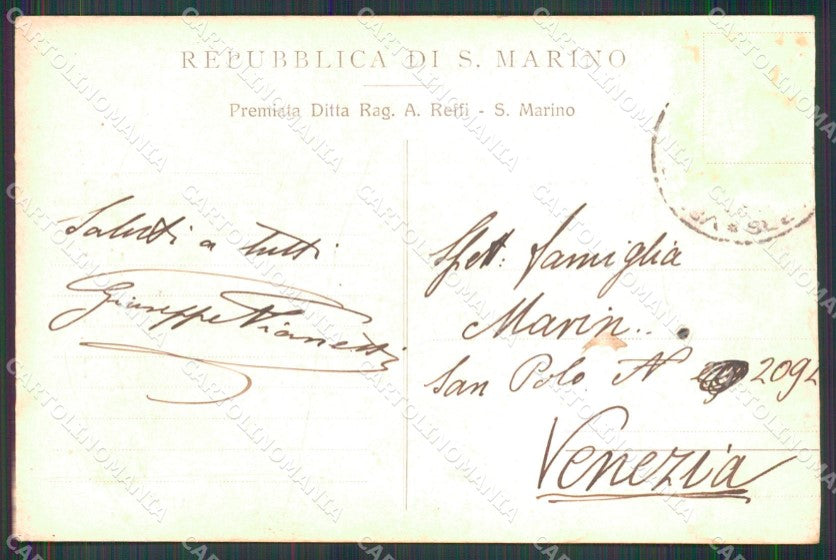 REPUBBLICA DI S. MARINO
Premiata Ditta Rag. A. Reffi - S. Marino
Saluti a tutti
Giuseppe Vianetti
Spett. famiglia
Marin..
San Polo N 2092
Venezia
CARTOLINOMANIA